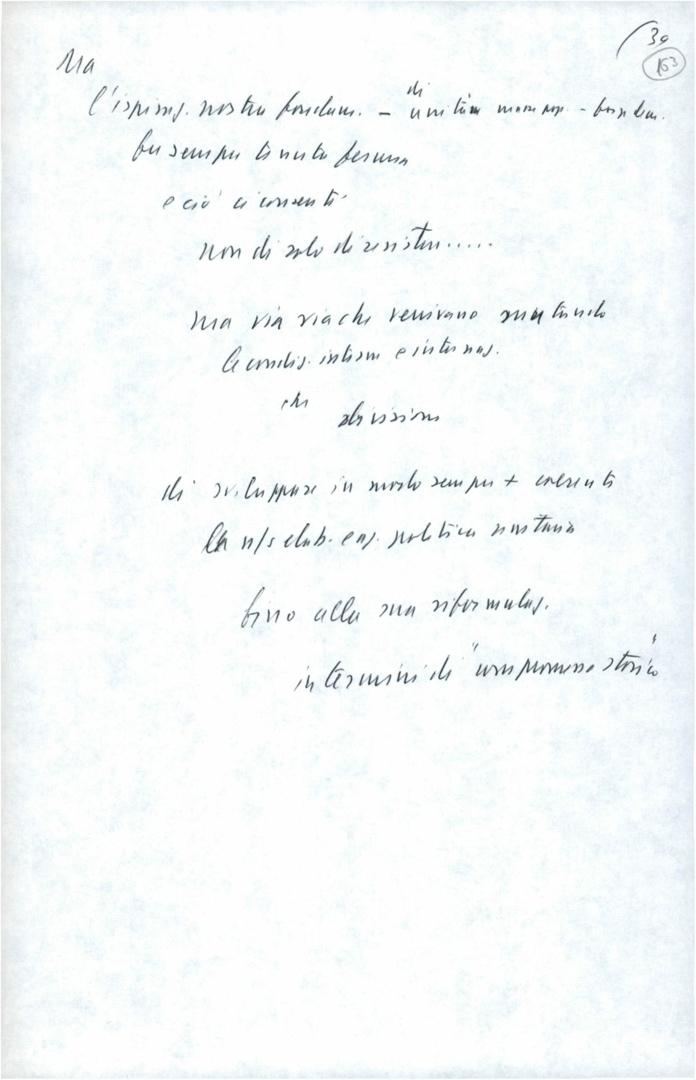 39
163
Ma
l'ispiraz. nostra fondam. - di unità
fu sempre tenuta ferma
e ciò ci consentì
non di solo di resistere.....
ma via via che venivano mutando
le condiz. interne e internaz.
che
di sviluppare in modo sempre + coerente
la n/s elab. e az. politica unitaria
fino alla sua riformulaz.
in termini di "compromesso storico"